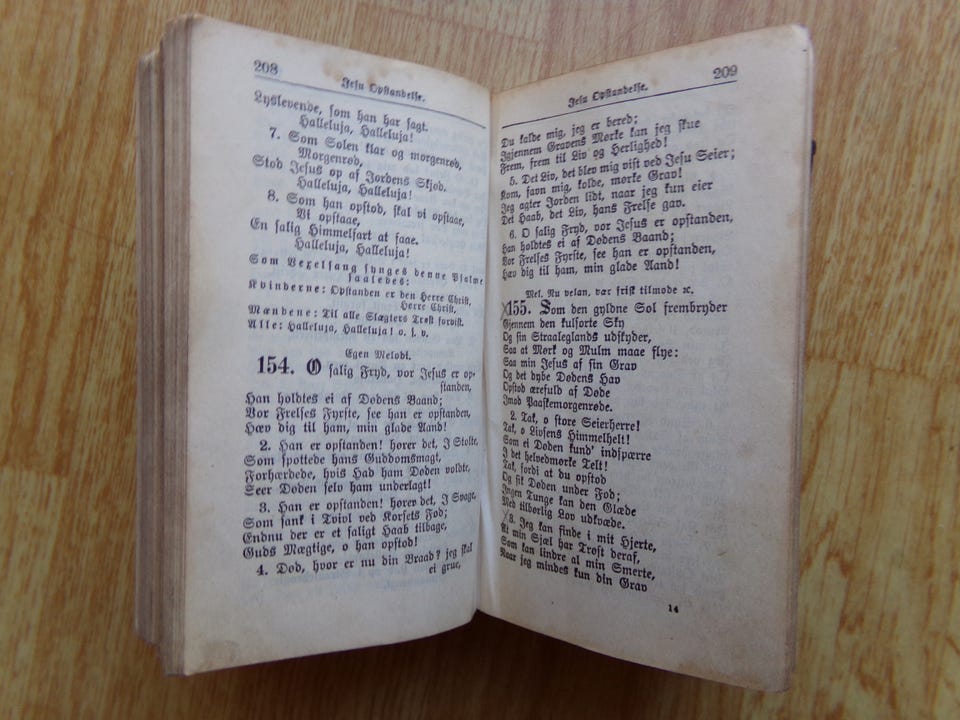 208
Jesu Opstandelse.
Lyslevende, som han har sagt.
Halleluja, Halleluja!
7. Som Solen klar og morgenrød,
Morgenrød,
Stod Jesus op af Jordens Skjød.
Halleluja, Halleluja!
8. Som han opstod, skal vi opstaae,
Vi opstaae,
En salig Himmelfart at faae.
Halleluja, Halleluja!
Som Vexelsang synges denne Psalme
saaledes:
Kvinderne: Opstanden er den Herre Christ,
Herre Christ.
Mændene: Til alle Slægters Trøst forvist.
Alle: Halleluja, Halleluja! o. s. v.
Egen Melodi.
154. O salig Fryd, vor Jesus er op-
standen,
Han holdtes ei af Dødens Baand;
Vor Frelses Fyrste, see han er opstanden,
Hæv dig til ham, min glade Aand!
2. Han er opstanden! hører det, I Stolte,
Som spottede hans Guddomsmagt,
Forhærdede, hvis Had ham Døden voldte,
Seer Døden selv ham underlagt!
3. Han er opstanden! hører det, I Svage,
Som sank i Tvivl ved Korsets Fod;
Endnu der er et saligt Haab tilbage,
Guds Mægtige, o han opstod!
4. Død, hvor er nu din Braad? jeg skal
ei grue,
209
Jesu Opstandelse.
Du kalde mig, jeg er bered;
Igjennem Gravens Mørke kan jeg skue
Frem, frem til Liv og Herlighed!
5. Det Liv, det blev mig vist ved Jesu Seier;
Kom, favn mig, kolde, mørke Grav!
Jeg agter Jorden lidt, naar jeg kun eier
Det Haab, det Liv, hans Frelse gav.
6. O salig Fryd, vor Jesus er opstanden,
Han holdtes ei af Dødens Baand;
Vor Frelses Fyrste, see han er opstanden,
Hæv dig til ham, min glade Aand!
Mel. Nu velan, vær frisk tilmode ꝛc.
155. Som den gyldne Sol frembryder
Gjennem den kulsorte Sky
Og sin Straaleglands udskyder,
Saa at Mørk og Mulm maae flye:
Saa min Jesus af sin Grav
Og det dybe Dødens Hav
Opstod ærefuld af Døde
Imod Paaskemorgenrøde.
2. Tak, o store Seierherre!
Tak, o Livsens Himmelhelt!
Som ei Døden kund' indspærre
I det helvedmørke Telt!
Tak, fordi at du opstod
Og fik Døden under Fod;
Ingen Tunge kan den Glæde
Med tilbørlig Lov udkvæde.
3. Jeg kan finde i mit Hjerte,
At min Sjæl har Trøst deraf,
Som kan lindre al min Smerte,
Naar jeg mindes kun din Grav
14